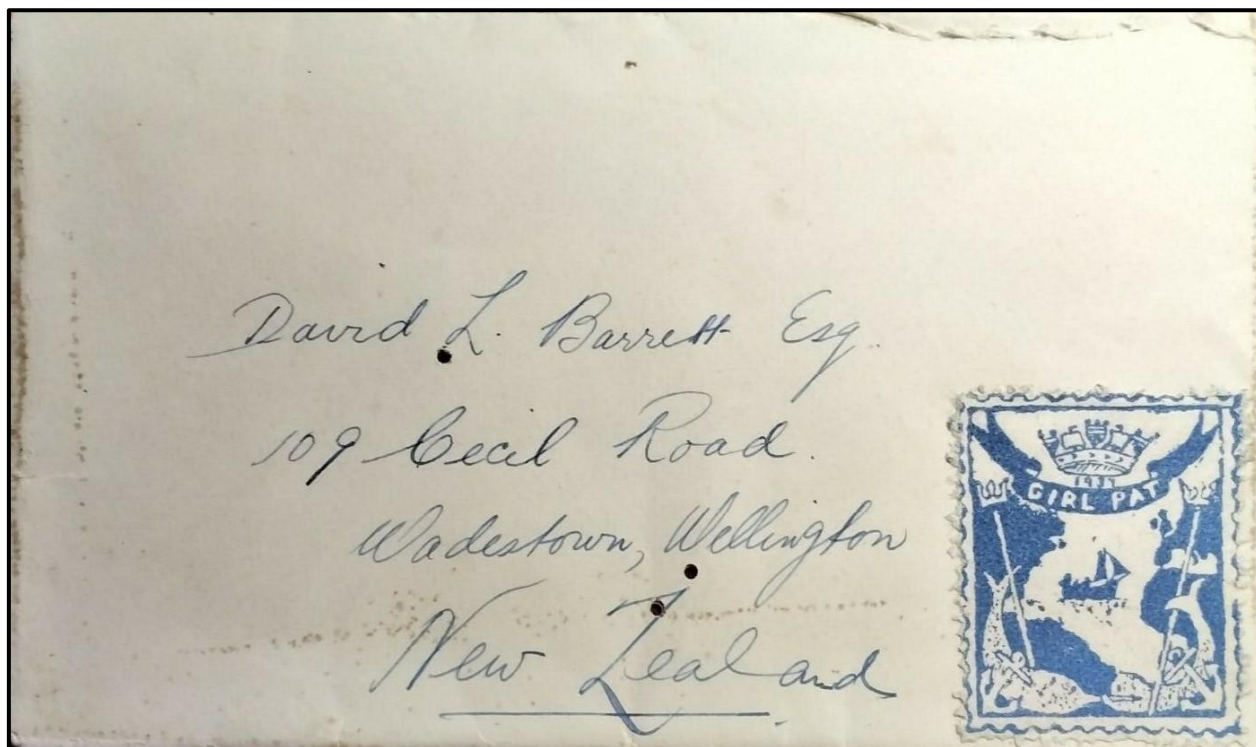 David L. Barrett Esq.
109 Cecil Road.
Wadestown, Wellington
New Zealand
1937
GIRL PAT